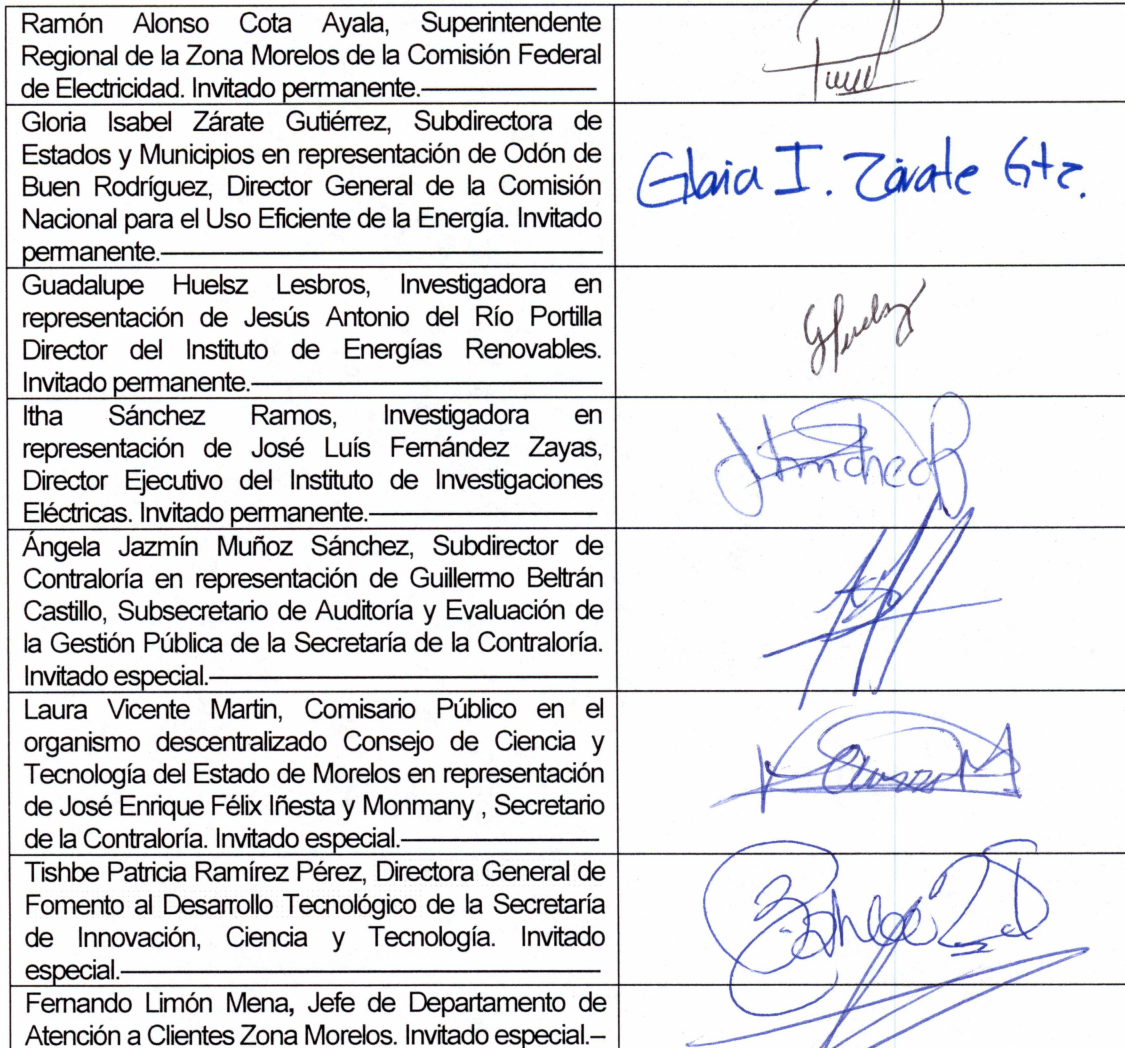 Ramón Alonso Cota Ayala, Superintendente
Regional de la Zona Morelos de la Comisión Federal
de Electricidad. Invitado permanente.
Gloria Isabel Zárate Gutiérrez, Subdirectora de
Estados y Municipios en representación de Odón de
Buen Rodríguez, Director General de la Comisión
Nacional para el Uso Eficiente de la Energía. Invitado
permanente.
Gloria I. Zárate Gtz.
Guadalupe Huelsz Lesbros, Investigadora en
representación de Jesús Antonio del Río Portilla
Director del Instituto de Energías Renovables.
Invitado permanente.
GHuelsz
Itha Sánchez Ramos, Investigadora en
representación de José Luís Fernández Zayas,
Director Ejecutivo del Instituto de Investigaciones
Eléctricas. Invitado permanente.
Ángela Jazmín Muñoz Sánchez, Subdirector de
Contraloría en representación de Guillermo Beltrán
Castillo, Subsecretario de Auditoría y Evaluación de
la Gestión Pública de la Secretaría de la Contraloría.
Invitado especial.
Laura Vicente Martin, Comisario Público en el
organismo descentralizado Consejo de Ciencia y
Tecnología del Estado de Morelos en representación
de José Enrique Félix Iñesta y Monmany , Secretario
de la Contraloría. Invitado especial.
Tishbe Patricia Ramírez Pérez, Directora General de
Fomento al Desarrollo Tecnológico de la Secretaría
de Innovación, Ciencia y Tecnología. Invitado
especial.
Fernando Limón Mena, Jefe de Departamento de
Atención a Clientes Zona Morelos. Invitado especial.–